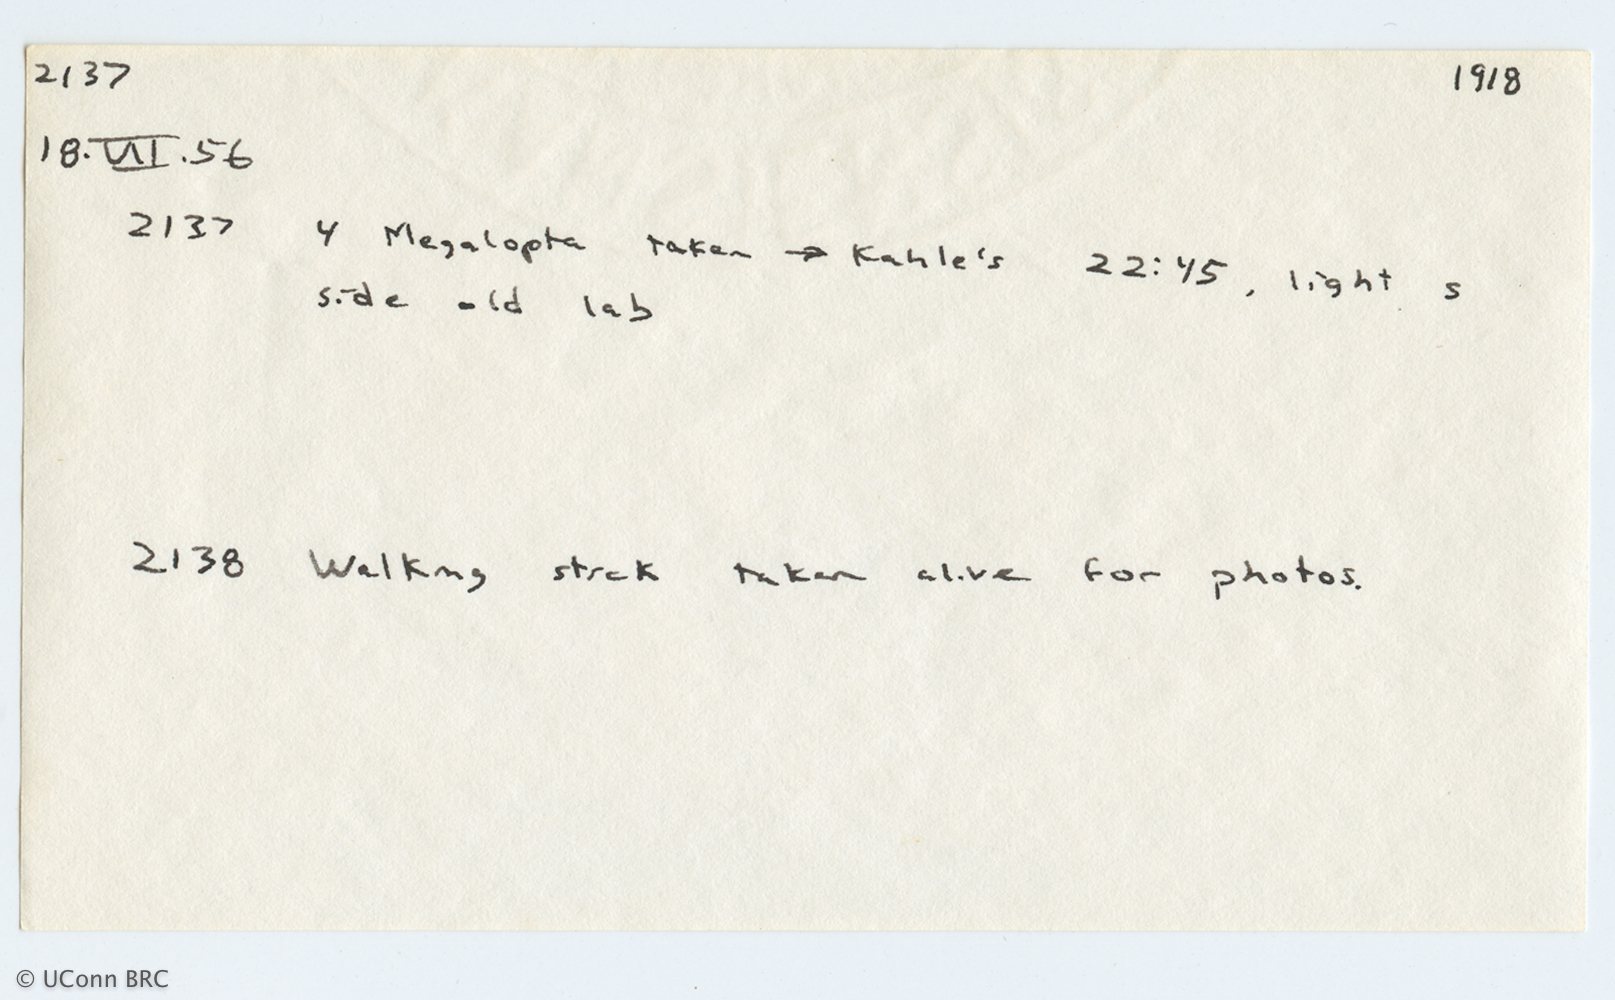 2137 1918
18.VII.56
2137 4 Megalopta taken → Kahle's 22:45, light s
side old lab
2138 Walking stick taken alive for photos.
© UConn BRC